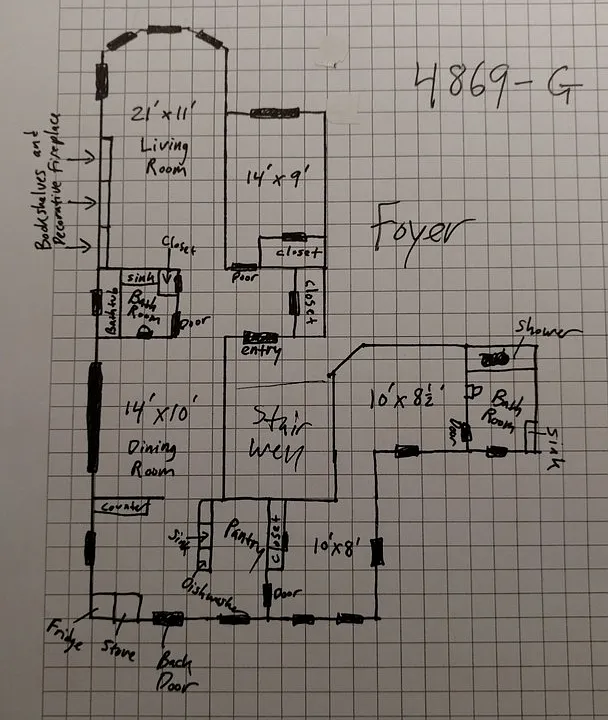 4869-G
21' x 11'
Living
Room
Bookshelves and
Decorative Fireplace
14' x 9'
Foyer
closet
closet
Door
sink
Bath
Room
Bathtub
Door
closet
entry
shower
10' x 8½'
Bath
Room
Door
Sink
14' x 10'
Dining
Room
Stair
Well
counter
Sink
Pantry
closet
10' x 8'
Dishwasher
Door
Fridge
Stove
Back
Door